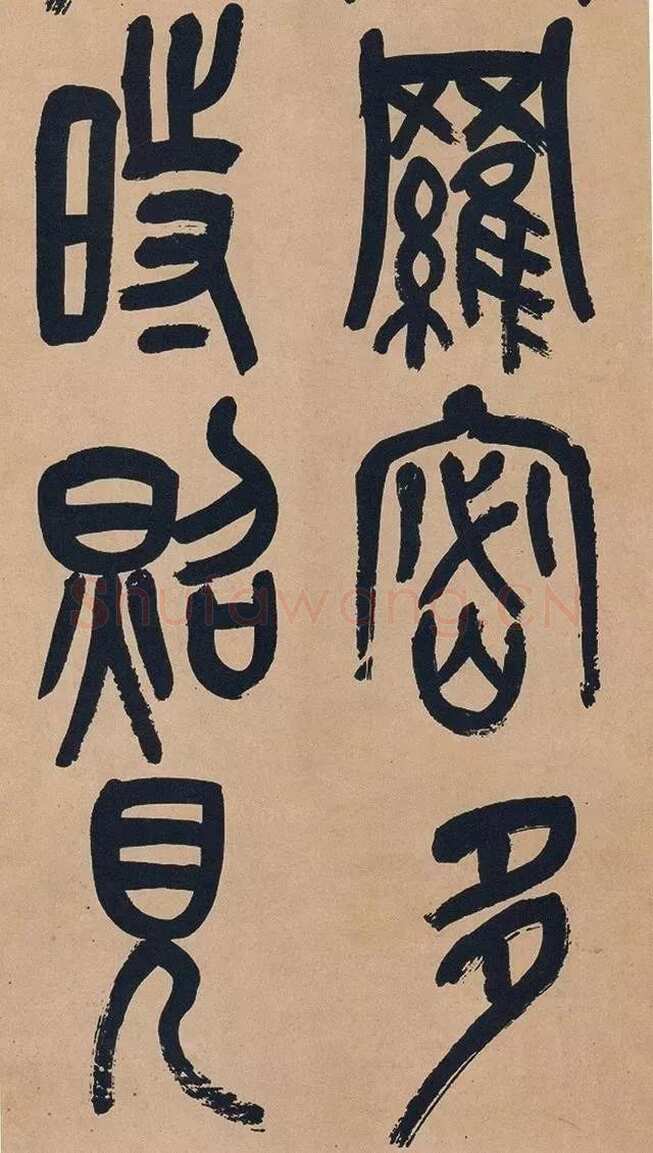 羅密多
時照見
shufawang.CN